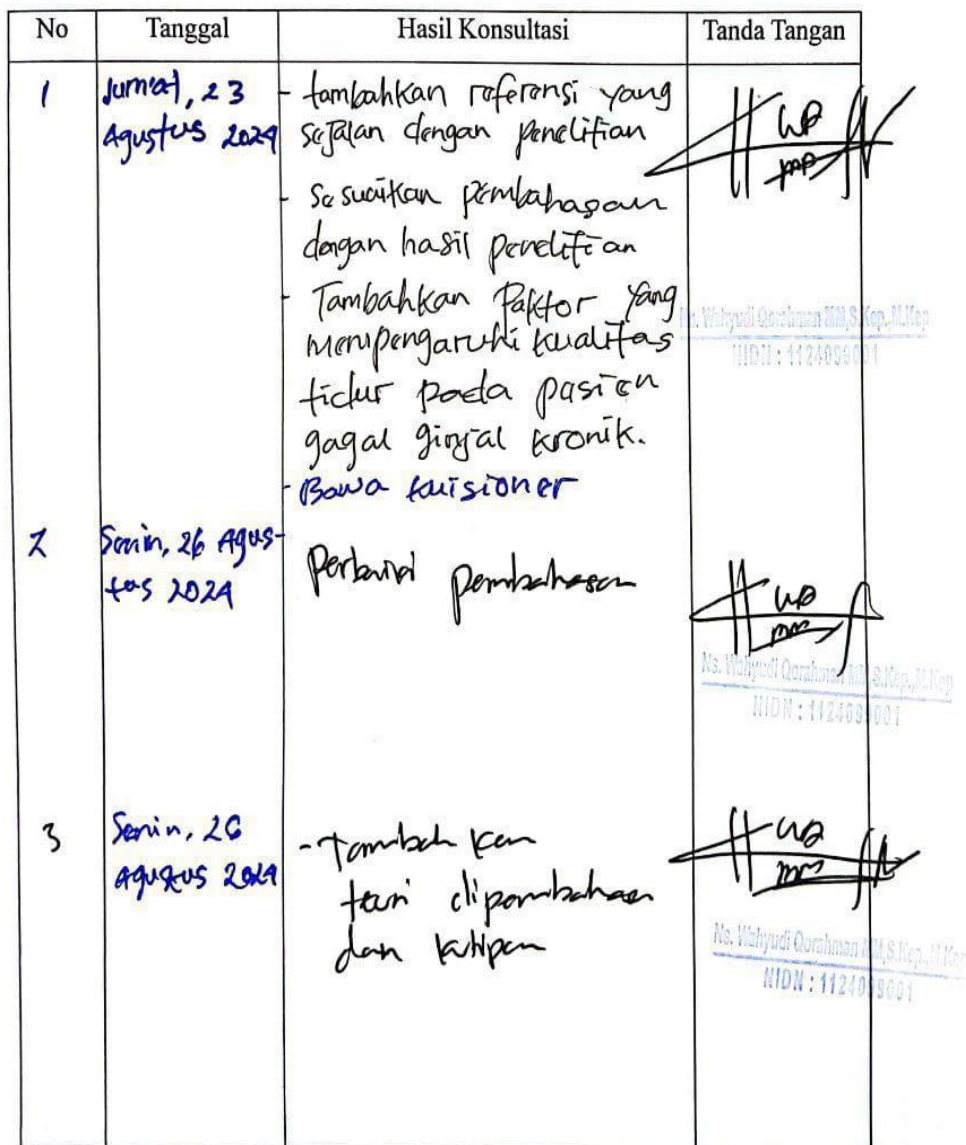 No Tanggal Hasil Konsultasi Tanda Tangan
1 Jum'at, 23 - tambahkan referensi yang
Agustus 2024 sejalan dengan penelitian
- Sesuaikan pembahasan
dengan hasil penelitian
- Tambahkan Faktor yang
mempengaruhi kualitas
tidur pada pasien
gagal ginjal kronik.
- Bawa kuisioner
Ns. Wahyudi Qorahman MM,S.Kep.,M.Kep
NIDN : 1124099001
2 Senin, 26 Agus-
tus 2024 Perbaiki pembahasan
Ns. Wahyudi Qorahman MM,S.Kep.,M.Kep
NIDN : 1124099001
3 Senin, 26 - Tambahkan
Agustus 2024 teori dipembahasan
dan kutipan
Ns. Wahyudi Qorahman MM,S.Kep.,M.Kep
NIDN : 1124099001